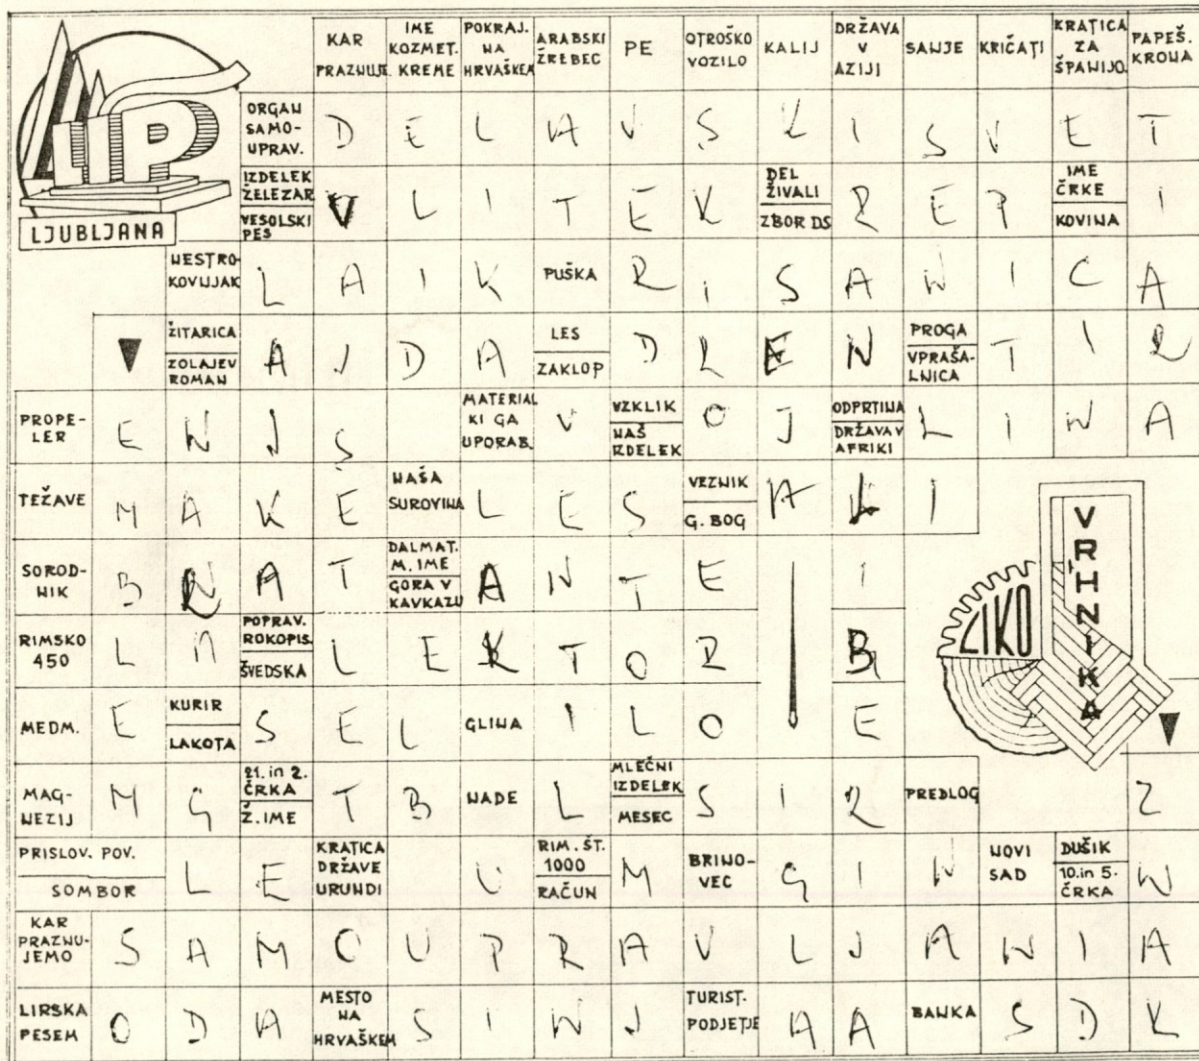 KAR PRAZNUJE
IME KOZMET. KREME
POKRAJ. NA HRVAŠKEM
ARABSKI ŽREBEC
PE
OTROŠKO VOZILO
KALIJ
DRŽAVA V AZIJI
SANJE
KRIČATI
KRATICA ZA ŠPANIJO
PAPEŠ. KRONA
LIP
LJUBLJANA
ORGAN SAMO- UPRAV. D E L A V S K I S V E T
IZDELEK ŽELEZAR VESOLSKI PES V L I T E K DEL ŽIVALI ZBOR DS R E P IME ČRKE KOVINA I
NESTRO- KOVNJAK L A I K PUŠKA R I S A N I C A
ŽITARICA ZOLAJEV ROMAN A J D A LES ZAKLOP D R E N PROGA VPRAŠA- LNICA T I R
PROPE- LER E N J S MATERIAL KI GA UPORAB. V VZKLIK NAŠ IZDELEK O J ODPRTINA DRŽAVA V AFRIKI L I N A
TEŽAVE M A K E NAŠA SUROVINA L E S VEZNIK G. BOG A L I
SOROD- NIK B R A T DALMAT. M. IME GORA V KAVKAZU A N T E I
RIMSKO 450 L N POPRAV. ROKOPIS. ŠVEDSKA L E K T O R B
MEDM. E KURIR LAKOTA S E L GLINA I L O E
MAG- NEZIJ M G 21. in 2. ČRKA Ž. IME T B NADE L MLEČNI IZDELEK MESEC S I R PREDLOG Z
PRISLOV. POV. SOMBOR L E KRATICA DRŽAVE URUNDI U RIM. ŠT. 1000 RAČUN M BRINO- VEC G I N NOVI SAD DUŠIK 10. in 5. ČRKA N
KAR PRAZNU- JEMO S A M O U P R A V L J A N J A
LIRSKA PESEM O D A MESTO NA HRVAŠKEM S I N J TURIST. PODJETJE A A BANKA S D K
LIKO
VRHNIKA